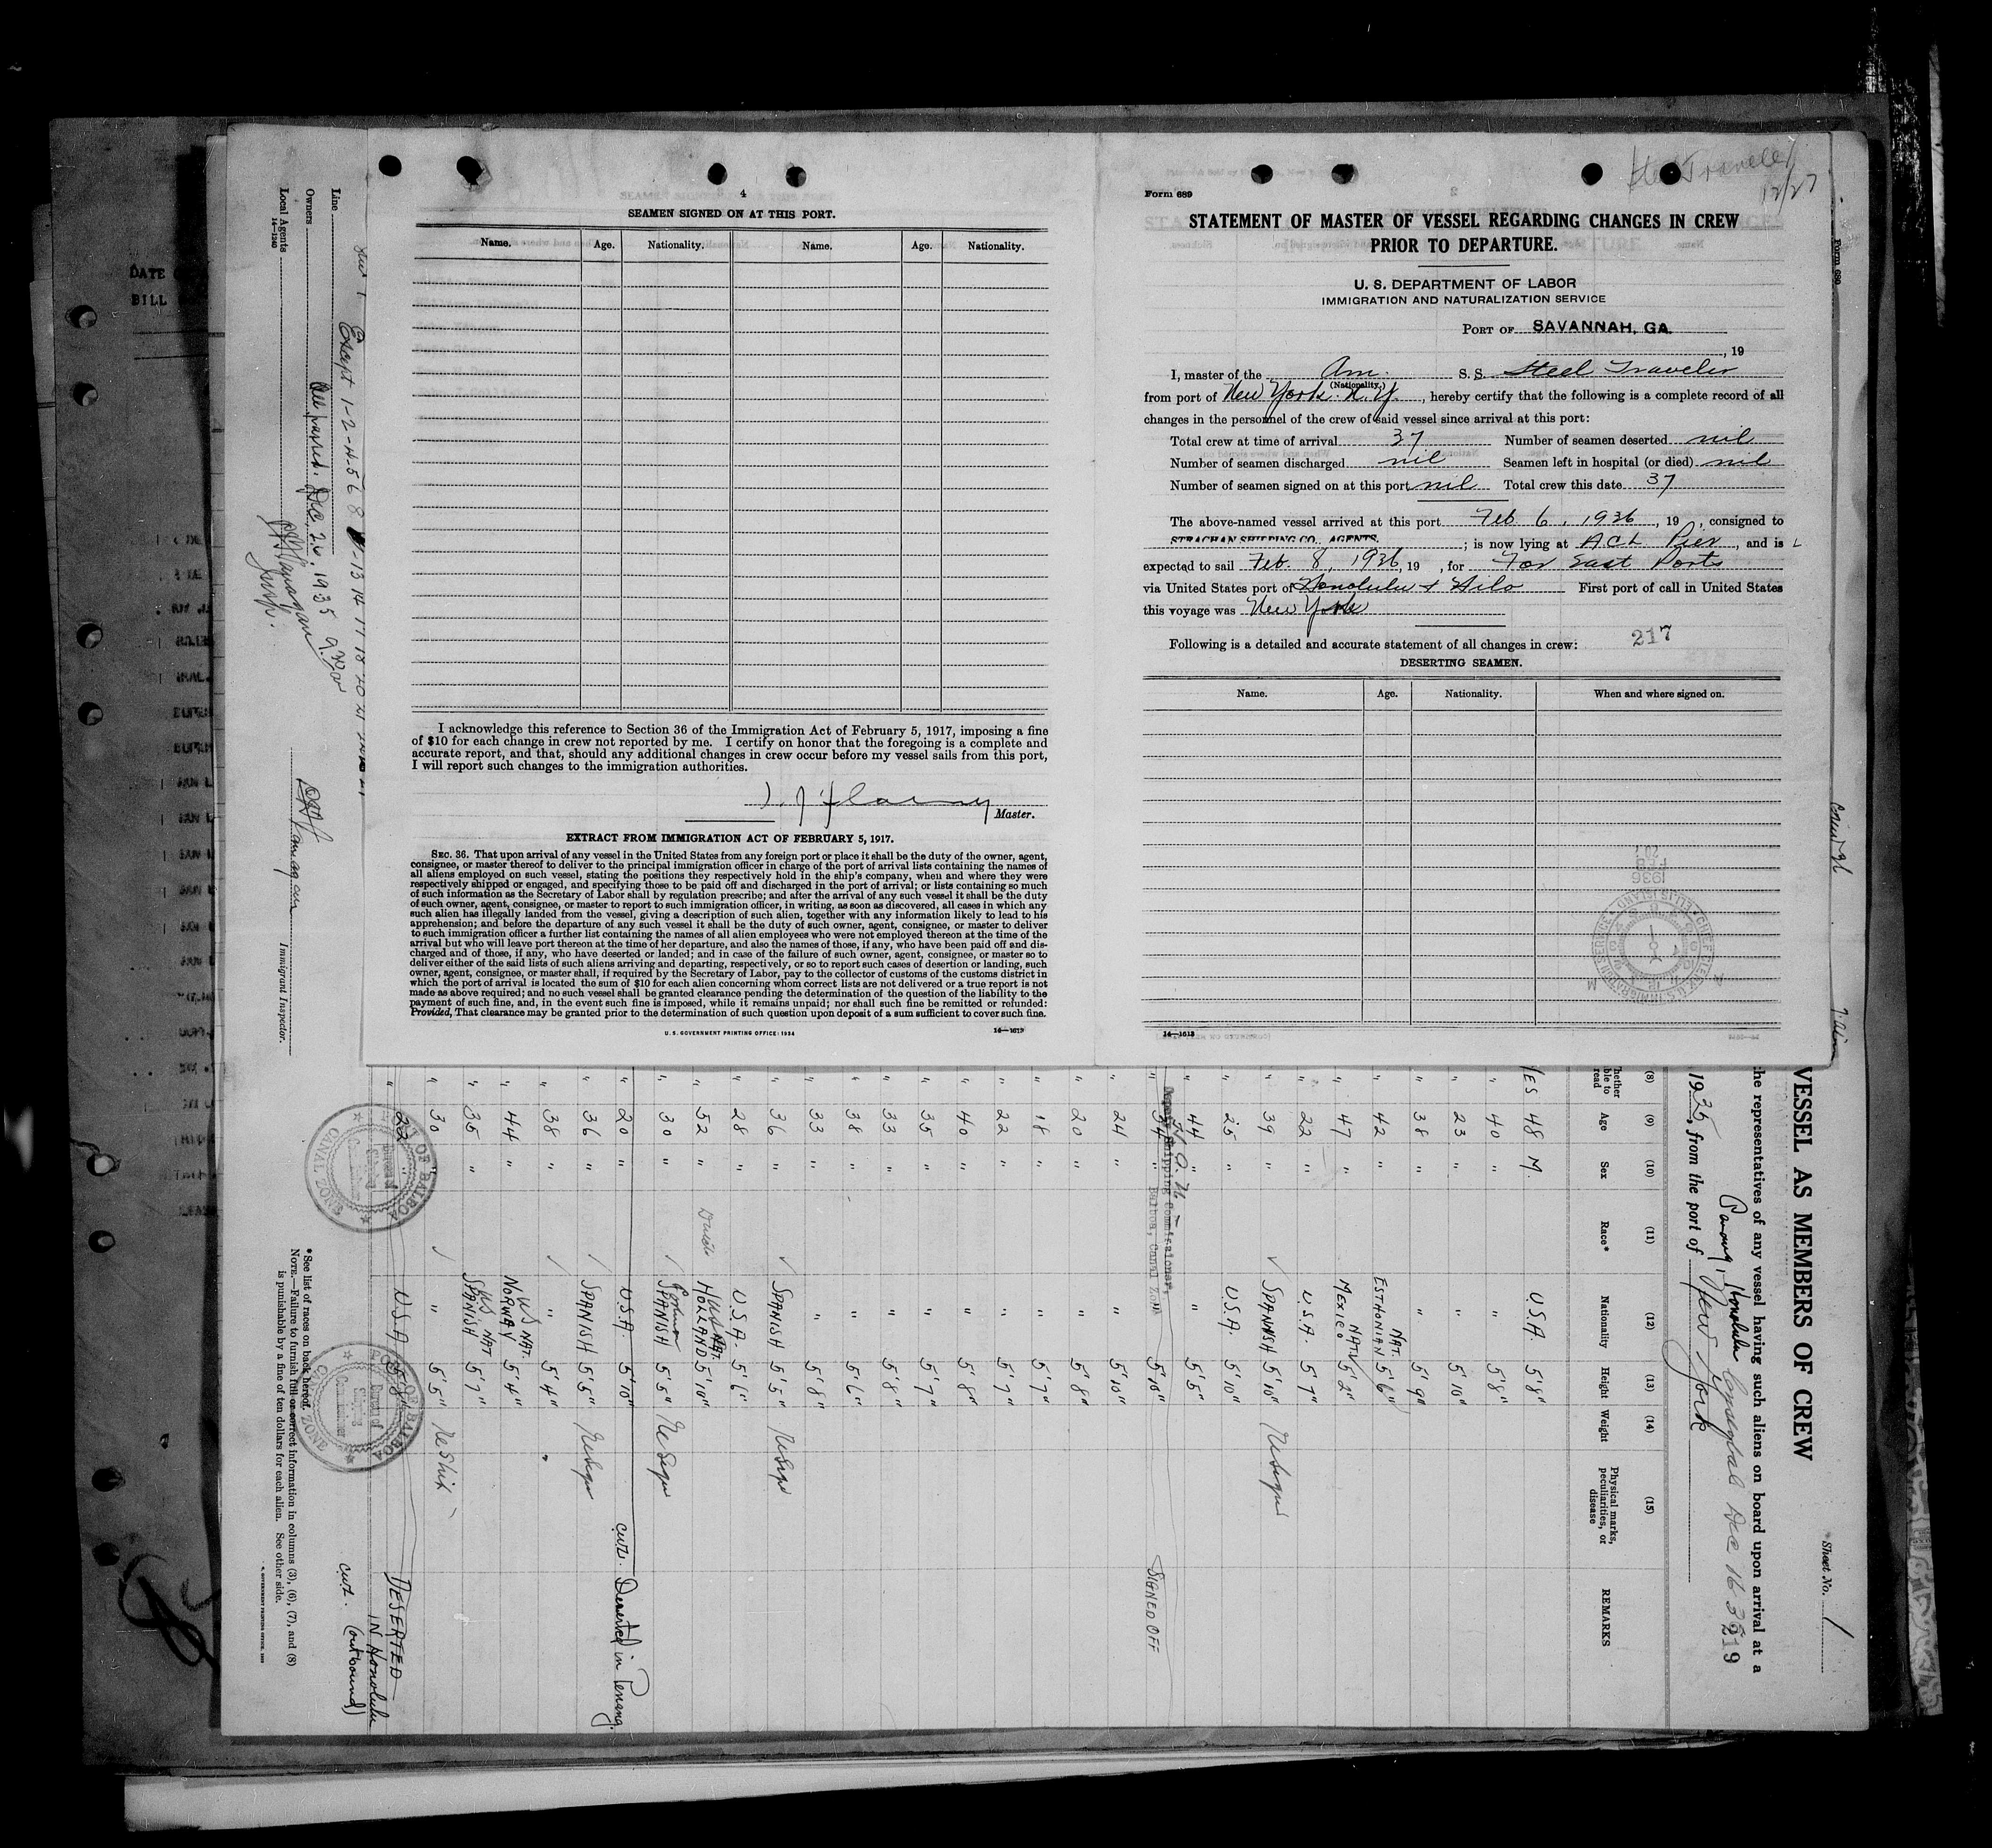 4
SEAMEN SIGNED ON AT THIS PORT.
Name. Age. Nationality. Name. Age. Nationality.
I acknowledge this reference to Section 36 of the Immigration Act of February 5, 1917, imposing a fine
of $10 for each change in crew not reported by me. I certify on honor that the foregoing is a complete and
accurate report, and that, should any additional changes in crew occur before my vessel sails from this port,
I will report such changes to the immigration authorities.
Master.
EXTRACT FROM IMMIGRATION ACT OF FEBRUARY 5, 1917.
SEC. 36. That upon arrival of any vessel in the United States from any foreign port or place it shall be the duty of the owner, agent,
consignee, or master thereof to deliver to the principal immigration officer in charge of the port of arrival lists containing the names of
all aliens employed on such vessel, stating the positions they respectively hold in the ship's company, when and where they were
respectively shipped or engaged, and specifying those to be paid off and discharged in the port of arrival; or lists containing so much
of such information as the Secretary of Labor shall by regulation prescribe; and after the arrival of any such vessel it shall be the duty
of such owner, agent, consignee, or master to report to such immigration officer, in writing, as soon as discovered, all cases in which any
such alien has illegally landed from the vessel, giving a description of such alien, together with any information likely to lead to his
apprehension; and before the departure of any such vessel it shall be the duty of such owner, agent, consignee, or master to deliver
to such immigration officer a further list containing the names of all alien employees who were not employed thereon at the time of the
arrival but who will leave port thereon at the time of her departure, and also the names of those, if any, who have been paid off and dis-
charged and of those, if any, who have deserted or landed; and in case of the failure of such owner, agent, consignee, or master so to
deliver either of the said lists of such aliens arriving and departing, respectively, or so to report such cases of desertion or landing, such
owner, agent, consignee, or master shall, if required by the Secretary of Labor, pay to the collector of customs of the customs district in
which the port of arrival is located the sum of $10 for each alien concerning whom correct lists are not delivered or a true report is not
made as above required; and no such vessel shall be granted clearance pending the determination of the question of the liability to the
payment of such fine, and, in the event such fine is imposed, while it remains unpaid; nor shall such fine be remitted or refunded:
Provided, That clearance may be granted prior to the determination of such question upon deposit of a sum sufficient to cover such fine.
U. S. GOVERNMENT PRINTING OFFICE: 1934 14—1613
Steel Traveler
12/27
Form 689
STATEMENT OF MASTER OF VESSEL REGARDING CHANGES IN CREW
PRIOR TO DEPARTURE.
U. S. DEPARTMENT OF LABOR
IMMIGRATION AND NATURALIZATION SERVICE
PORT OF SAVANNAH, GA.
, 19
I, master of the Am. S. S. Steel Traveler
(Nationality.)
from port of New York. N.Y. , hereby certify that the following is a complete record of all
changes in the personnel of the crew of said vessel since arrival at this port:
Total crew at time of arrival 37 Number of seamen deserted nil
Number of seamen discharged nil Seamen left in hospital (or died) nil
Number of seamen signed on at this port nil Total crew this date 37
The above-named vessel arrived at this port Feb 6, 1936 , 19 , consigned to
STRACHAN SHIPING CO., AGENTS. ; is now lying at ACL Pier , and is
expected to sail Feb. 8, 1936, 19 , for Far East Ports
via United States port of Honolulu & Hilo First port of call in United States
this voyage was New York
Following is a detailed and accurate statement of all changes in crew: 217
DESERTING SEAMEN.
Name. Age. Nationality. When and where signed on.
14—1613
DATE
BILL
Line
Owners
Local Agents
14—1240
All passed. Dec. 26. 1935
Immigrant Inspector.
VESSEL AS MEMBERS OF CREW
Sheet No. 1
the representatives of any vessel having such aliens on board upon arrival at a
Honolulu
1935, from the port of New York
219
(8) (9) (10) (11) (12) (13) (14) (15)
Age Sex Race* Nationality Height Weight Physical marks, peculiarities, or disease REMARKS
YES 48 M. U.S.A. 5'8"
" 40 " " 5'8"
" 23 " " 5'10"
" 38 " " 5'9"
" 42 " ESTHONIAN NAT. 5'6"
" 47 " MEXICO NAT. 5'2"
" 22 " U.S.A. 5'7"
" 39 " SPANISH 5'10"
" 25 " U.S.A. 5'10"
" 44 " " 5'5"
" 34 " " 5'10" SIGNED OFF
Deputy Shipping Commissioner,
Balboa, Canal Zone
" 24 " " 5'10"
" 20 " " 5'8"
" 18 " " 5'7"
" 22 " " 5'7"
" 40 " " 5'8"
" 35 " " 5'7"
" 33 " " 5'8"
" 38 " " 5'6"
" 33 " " 5'8"
" 36 " SPANISH 5'5"
" 28 " U.S.A. 5'6"
" 52 " Dutch HOLLAND 5'10"
" 30 " SPANISH 5'5"
" 20 " U.S.A. 5'10" Deserted in Penang.
" 36 " SPANISH 5'5"
" 38 " " 5'4"
" 44 " NORWAY US NAT. 5'4"
" 35 " SPANISH US. NAT 5'7"
" 30 " " 5'5"
" 22 " U.S.A. 5'8" DESERTED
IN Honolulu
(outbound)
*See list of races on back hereof.
NOTE.—Failure to furnish full or correct information in columns (3), (6), (7), and (8)
is punishable by a fine of ten dollars for each alien. See other side.